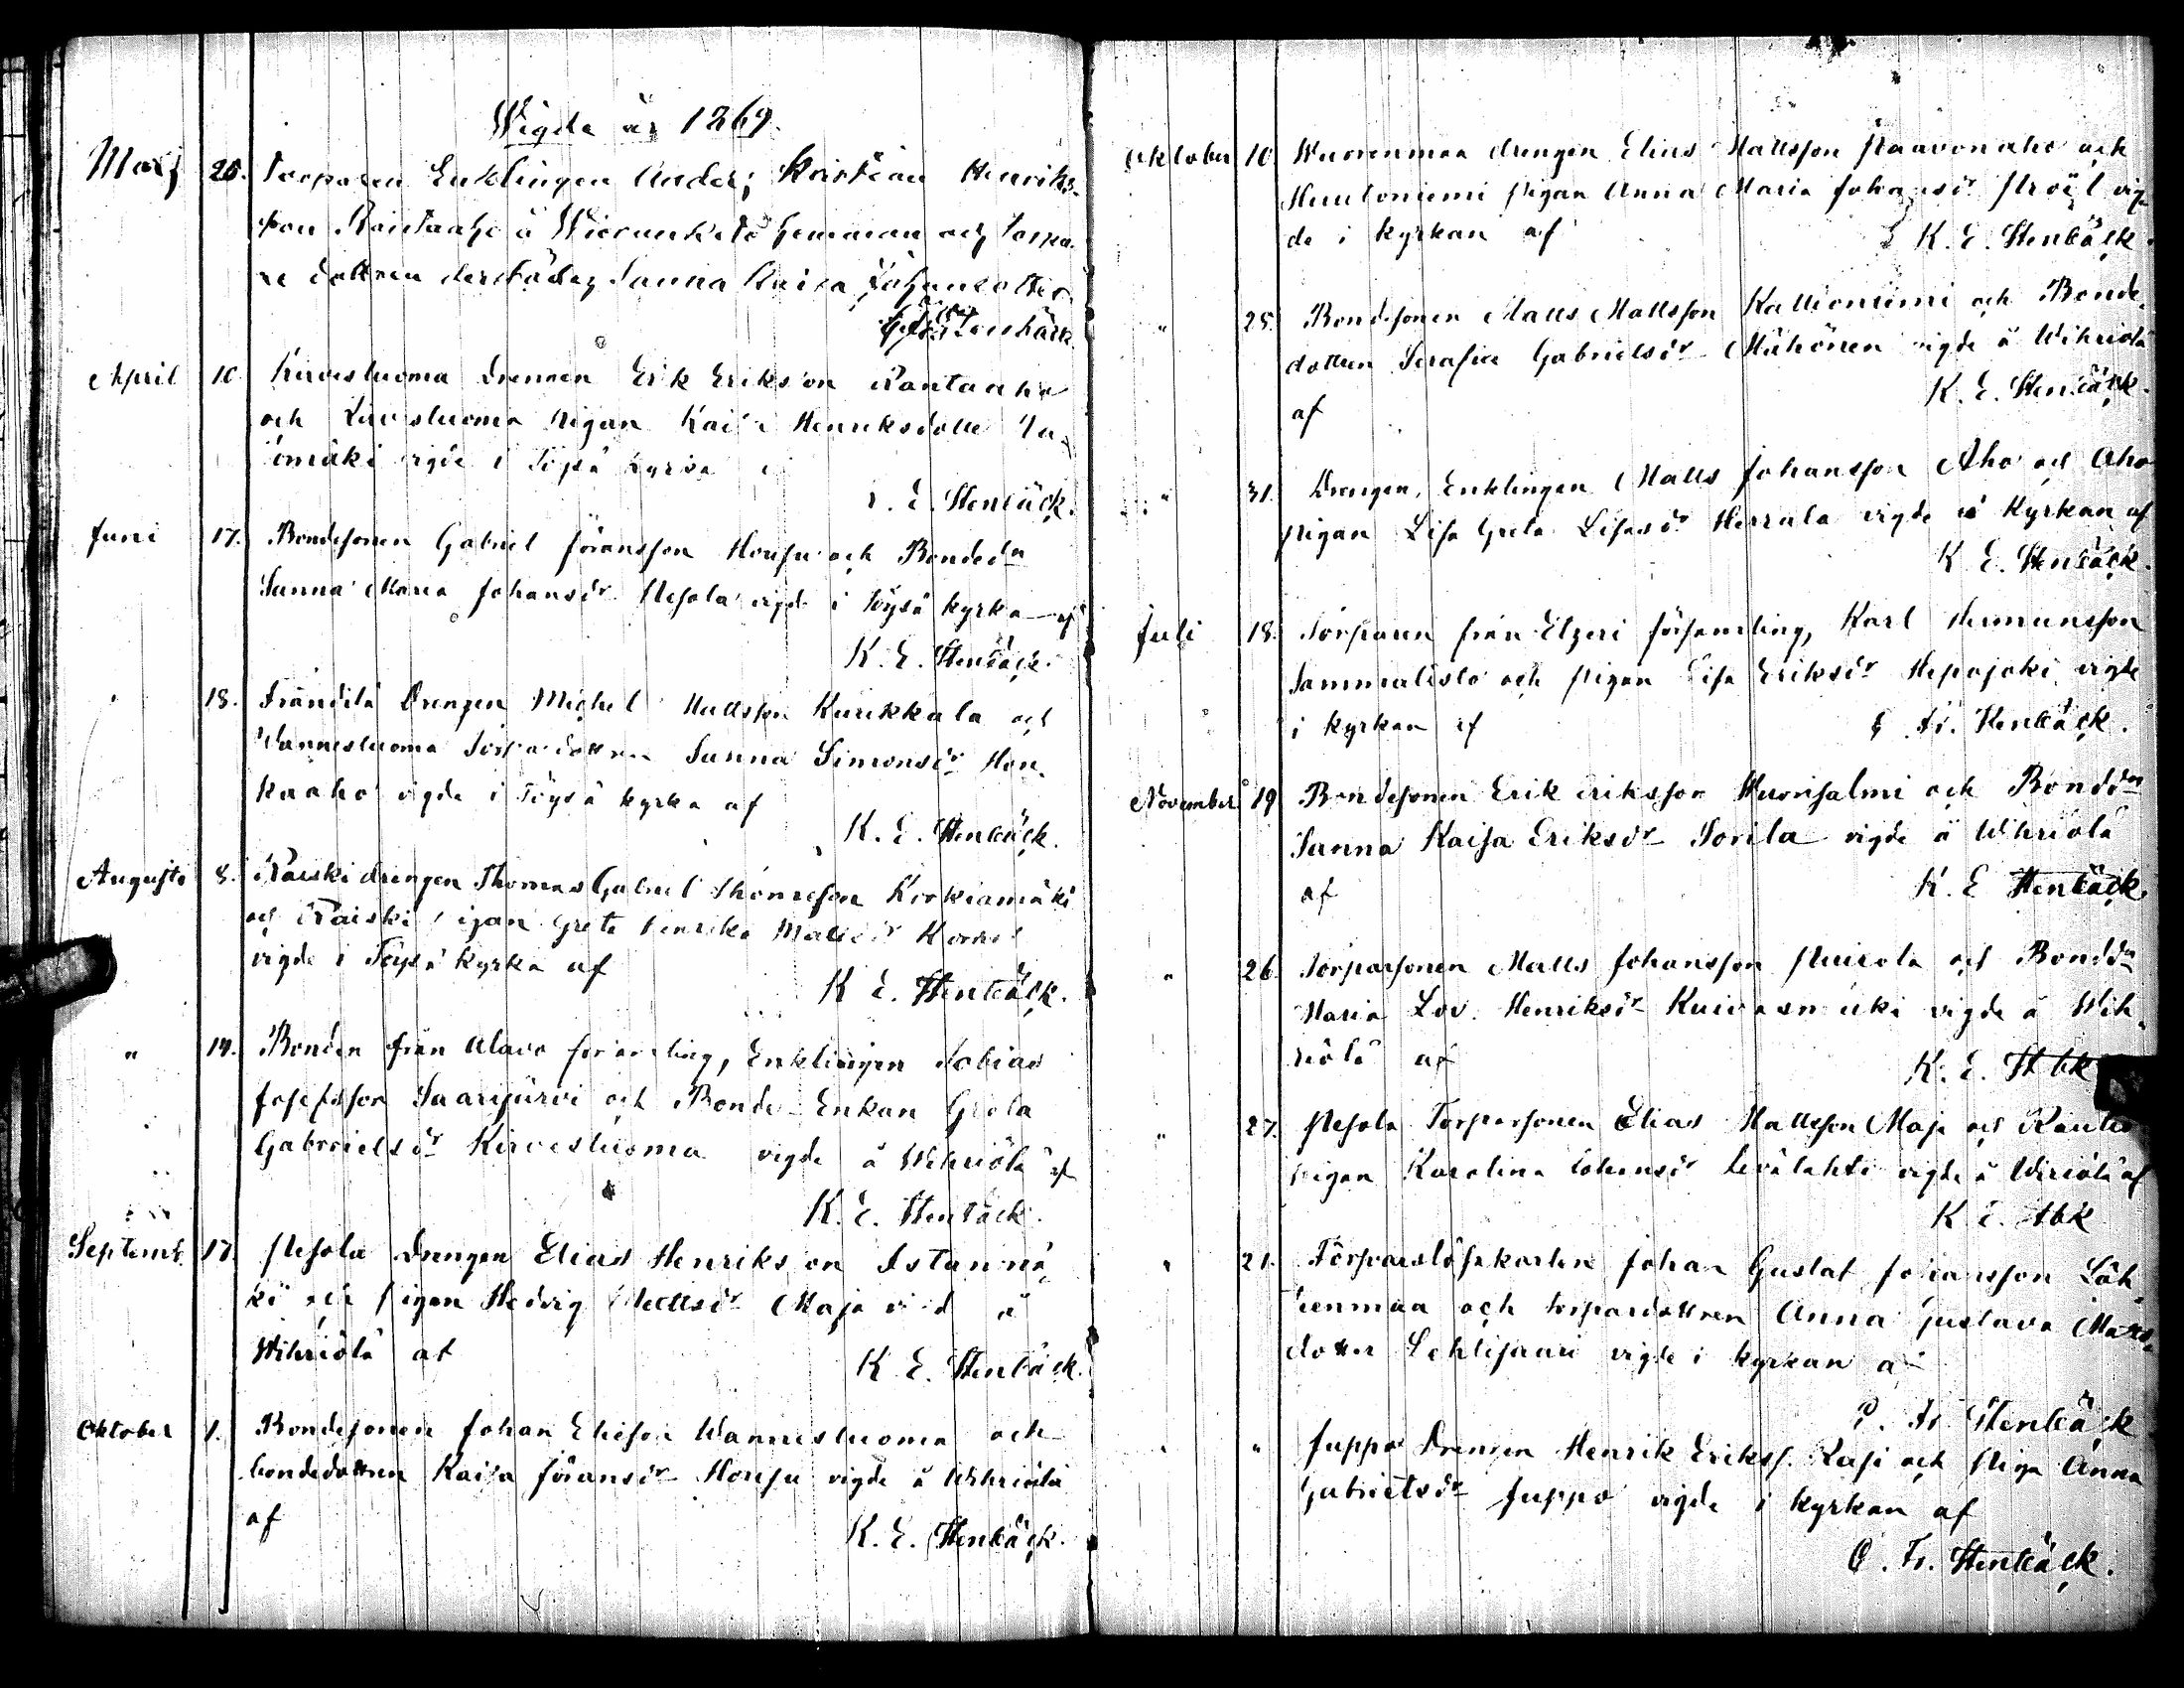 Wigde år 1869.
Mars 28. Torparen Enklingen Anders Kristian Henriks-
son Rantaaho å Wieruuketo hemman och torpa-
re dottren derstädes Sanna Kaisa Johansdotter
April 10. Kirvesluoma Drengen Erik Eriksson Rantaaho
och Kirvesluoma pigan Kaisa Henriksdotter
vigde i Töysä kyrka
K. E. Stenbäck.
Juni 17. Bondesonen Gabriel Göransson Housu och Bonded:n
Sanna Maria Johansd:r Pesola vigde i Töysä kyrka af
K. E. Stenbäck.
" 18. Frändilä Drengen Michel Mattsson Kurikkala och
Wannesluoma Torpardottren Sanna Simonsd:r Hon-
kaaho vigde i Töysä kyrka af
K. E. Stenbäck.
Augusti 8. Raiski drengen Thomas Gabriel Thomasson Korkiamäki
och Raiski pigan Greta Henrika Mattsd:r
vigde i Töysä kyrka af
K. E. Stenbäck.
" 14. Bonden från Alavo församling, Enklingen Tobias
Josefsson Saarijärvi och Bonde Enkan Greta
Gabrielsd:r Kirvesluoma vigde å Wihriölä af
K. E. Stenbäck.
Septemb. 17. Pesola Drengen Elias Henriksson Istunmä-
ki och pigan Hedvig Mattsd:r Maja vigd å
Wihriölä af
K. E. Stenbäck.
Oktober 1. Bondesonen Johan Eliesson Wannesluoma och
bondedottren Kaisa Göransd:r Housu vigde å Wihriölä
af
K. E. Stenbäck.
Oktober 10. Wuorenmaa drengen Elias Mattsson Paavonaho och
Huutoniemi pigan Anna Maria Johansd:r Ströyl vig-
de i kyrkan af
K. E. Stenbäck.
" 25. Bondesonen Matts Mattsson Kallioniemi och Bonde-
dottren Serafia Gabrielsd:r Mähönen vigde å Wihriölä
af
K. E. Stenbäck.
" 31. Drengen, Enklingen Matts Johansson Aho och Aho
pigan Lisa Greta Lisasd:r Herrala vigde i Kyrkan af
K. E. Stenbäck.
Juli 18. Torparen från Etzeri församling, Karl Hermansson
Sammalisto och pigan Lisa Eriksd:r Hepojoki vigde
i kyrkan af
Fr. Stenbäck.
November 19 Bondesonen Erik Eriksson Wuorisalmi och Bondd:n
Sanna Kaisa Eriksd:r Sorila vigde å Wihriölä
af
K. E Stenbäck.
" 26. Torparsonen Matts Johansson och Bondd:n
Maria Lov. Henriksd:r Kuivasmäki vigde å Wih-
riölä af
K. E. Stbk
" 27. Pesola Torparsonen Elias Mattsson Maja och
pigan Karolina Johansd:r Levälahti vigde å Wiriölä af
K. E. Stbk
" 21. Torparlösekarlen Johan Gustaf Johansson Läh-
teenmaa och torpardottren Anna Gustava Matts-
dotter Lehtisaari vigde i kyrkan af
Fr. Stenbäck
" " Juppo Drengen Henrik Erikss. Rasi och Piga Anna
Gabrielsd:r Juppo vigde i kyrkan af
O. Fr. Stenbäck.